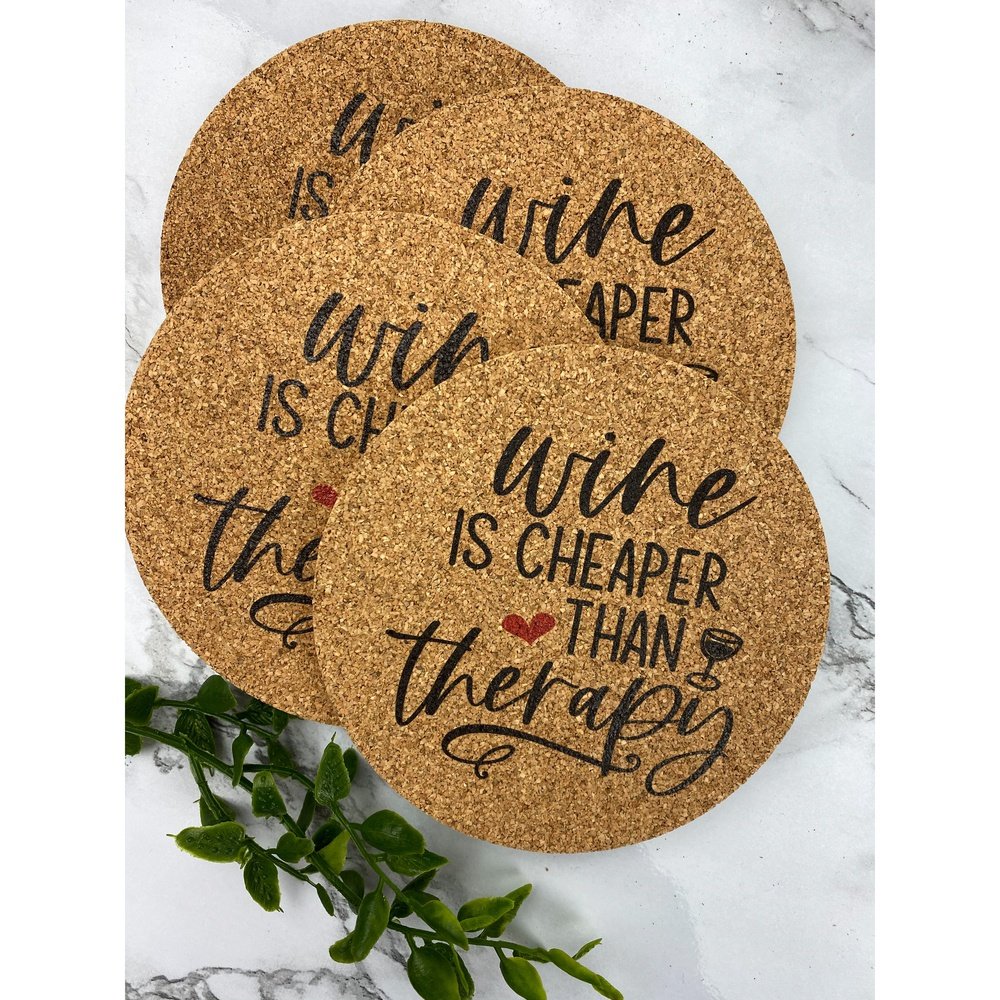 wine
IS
wine
EAPER
wine
IS CH
the
wine
IS CHEAPER
THAN
therapy